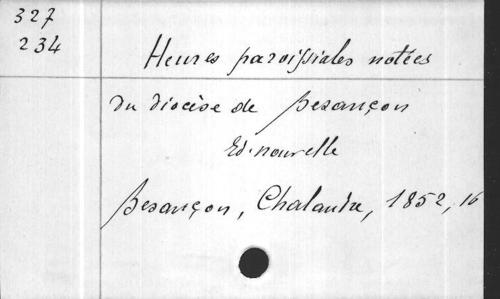 327
234
Heures paroissiales notées
du diocèse de Besançon
Ed. nouvelle
Besançon, Chalandre, 1852, 16